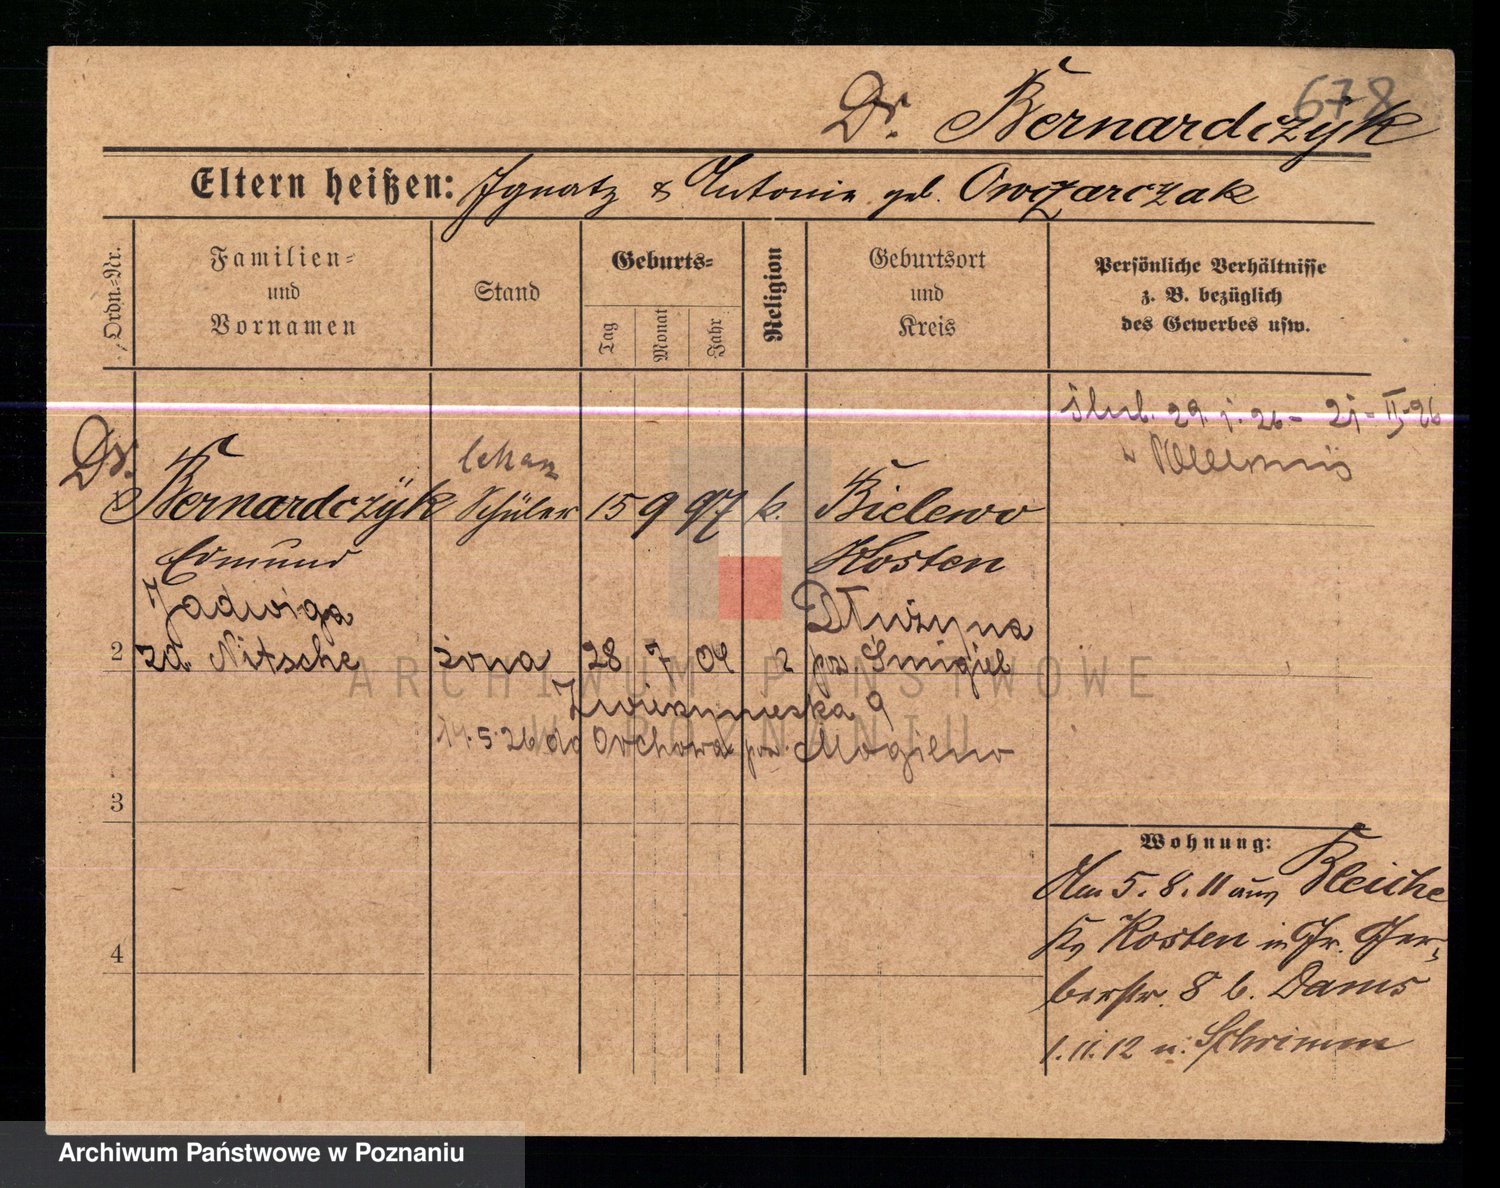 678
Dr. Bernardczÿk
Eltern heißen: Ignatz & Antonie geb. Owczarczak
Ordn.-Nr.
Familien-
und
Vornamen
Stand
Geburts-
Tag
Monat
Jahr
Religion
Geburtsort
und
Kreis
Persönliche Verhältnisse
z. B. bezüglich
des Gewerbes usw.
ślub. 29. 1. 26 - 21 - II - 26
Dr.
lekarz
Bernardczÿk Schüler 15 9 97 k. Bielewo
Edmund Kosten
Jadwiga Dłużyna
2 zd. Nitsche żona 28 7 04 pow. Śmigiel
Zwierzyniecka 9
14.5.26 do Orchowa pow. Mogilno
3
Wohnung:
Am 5.8.11 aus Bleiche
Kr. Kosten in Gr. Ger-
berstr. 8 b. Dams
1.11.12 n. Schrimm
4
ARCHIWUM PAŃSTWOWE
W POZNANIU
Archiwum Państwowe w Poznaniu